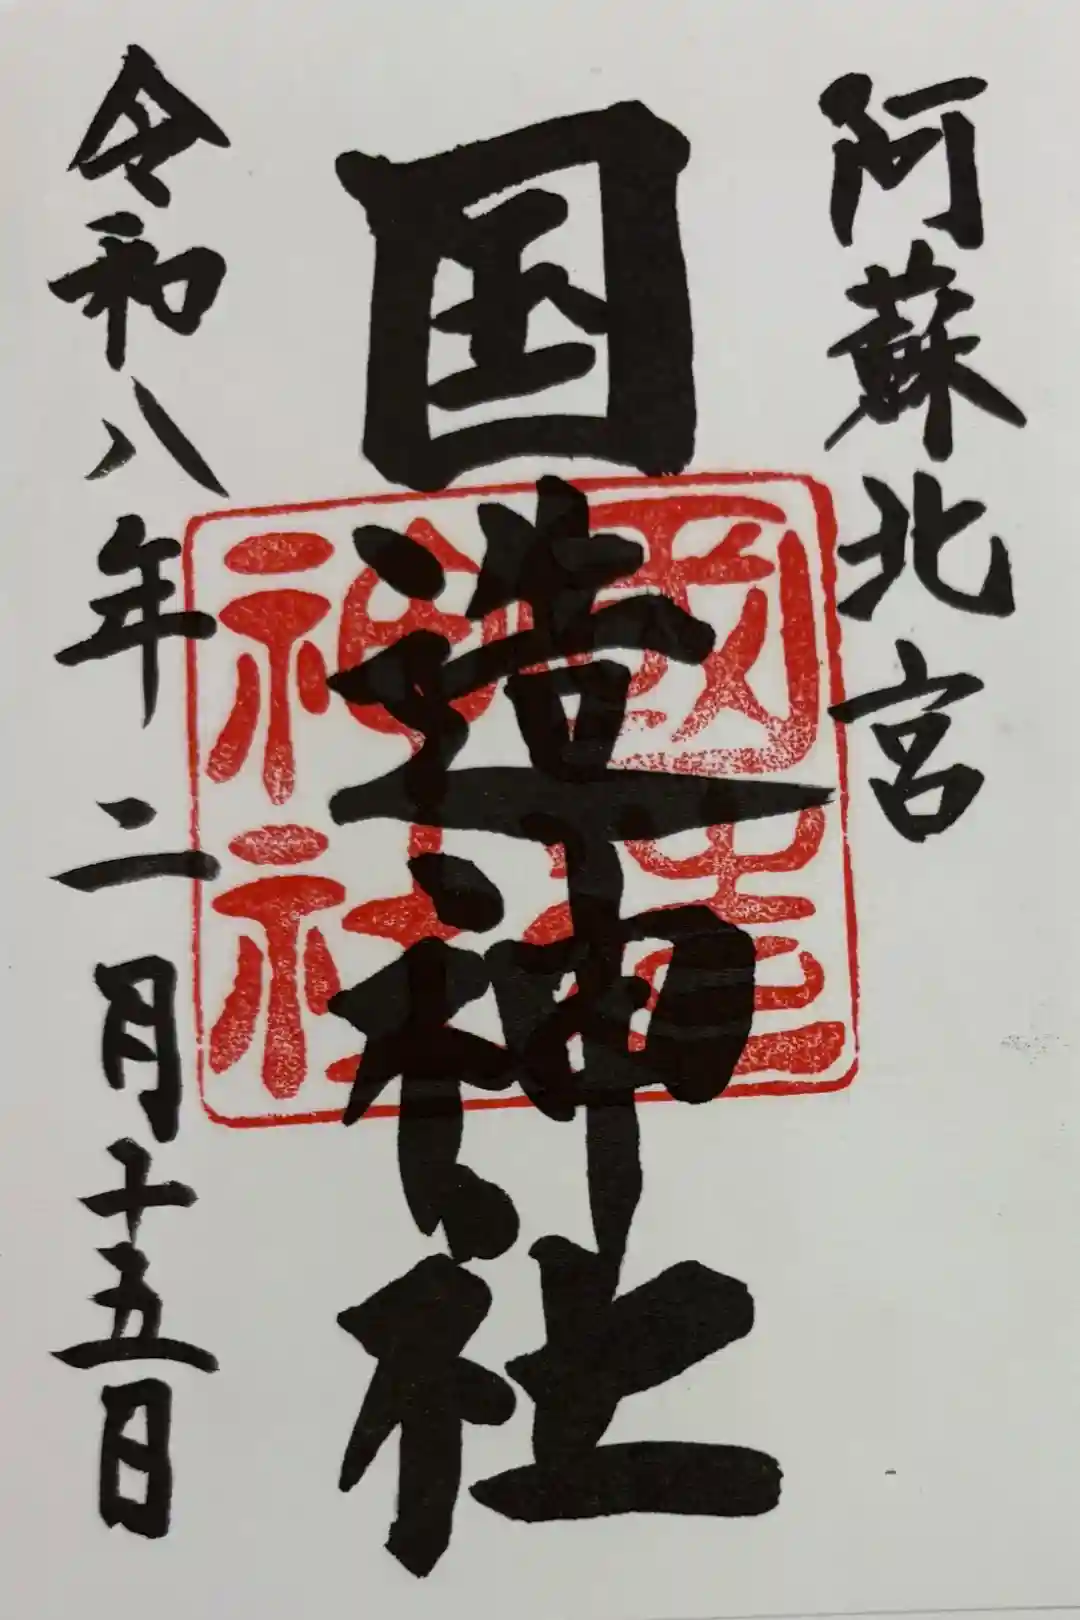 阿蘇北宮
国造神社
國造
神社
令和八年二月十五日